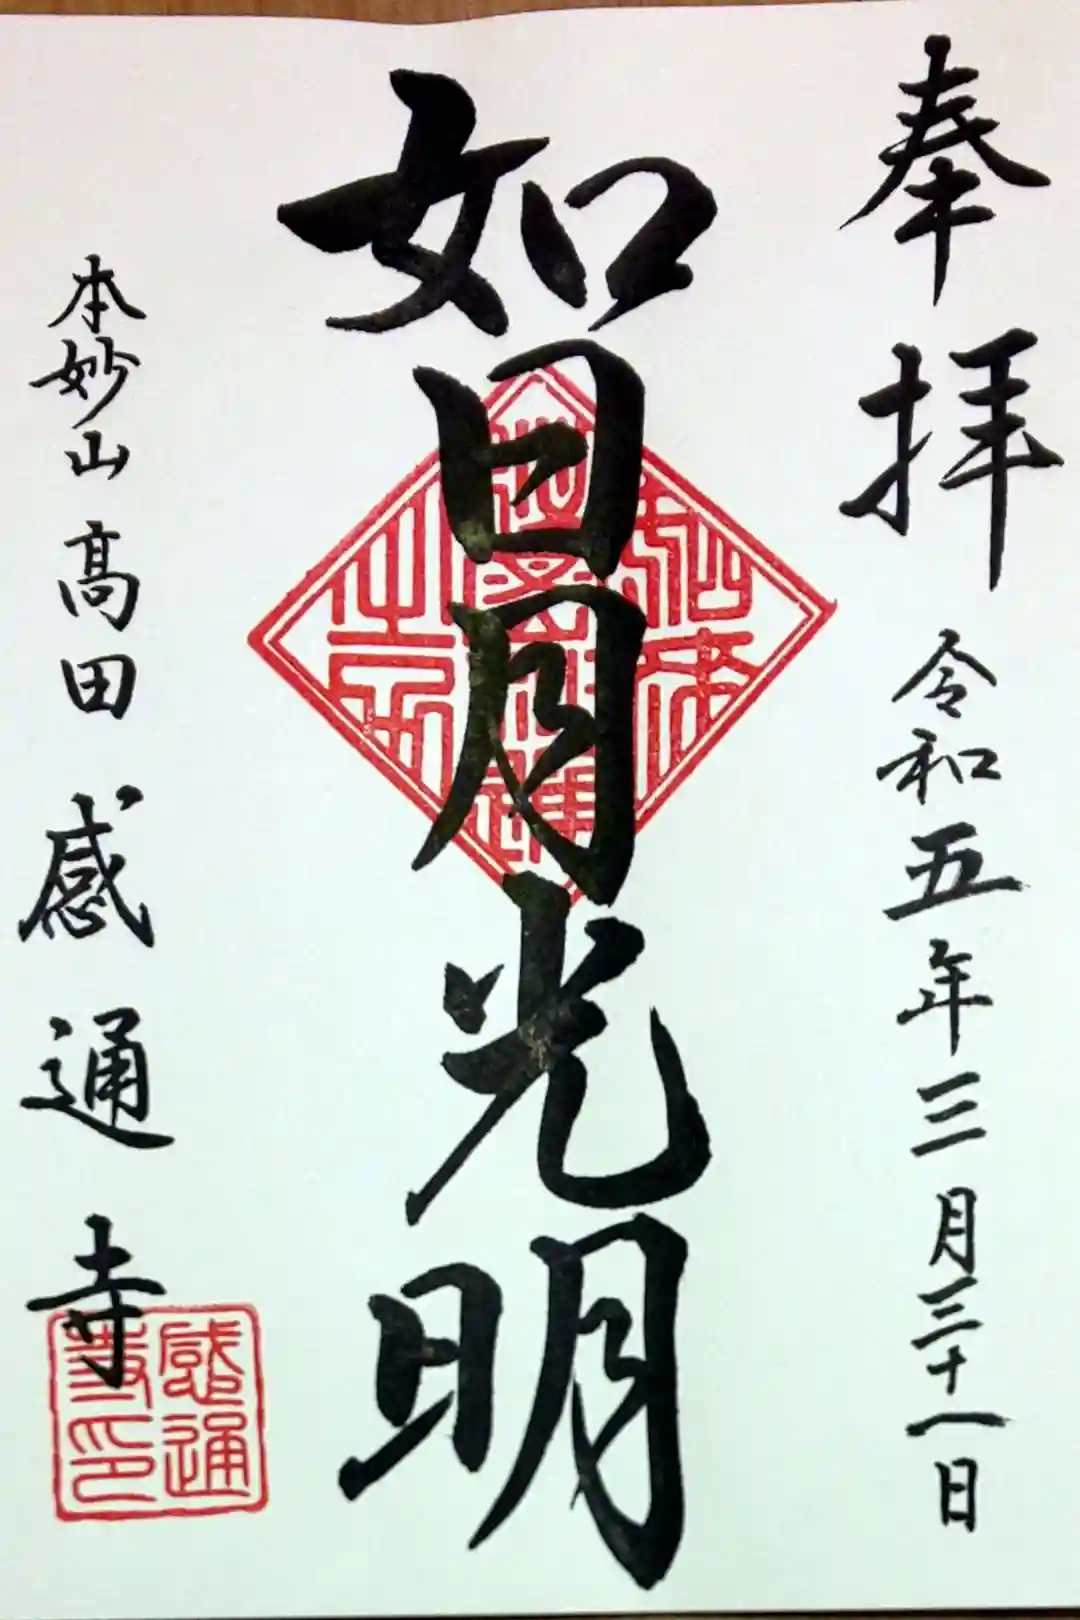 奉拝 令和五年三月三十一日
如日月光明
本妙山 高田 感通寺
感通
寺印